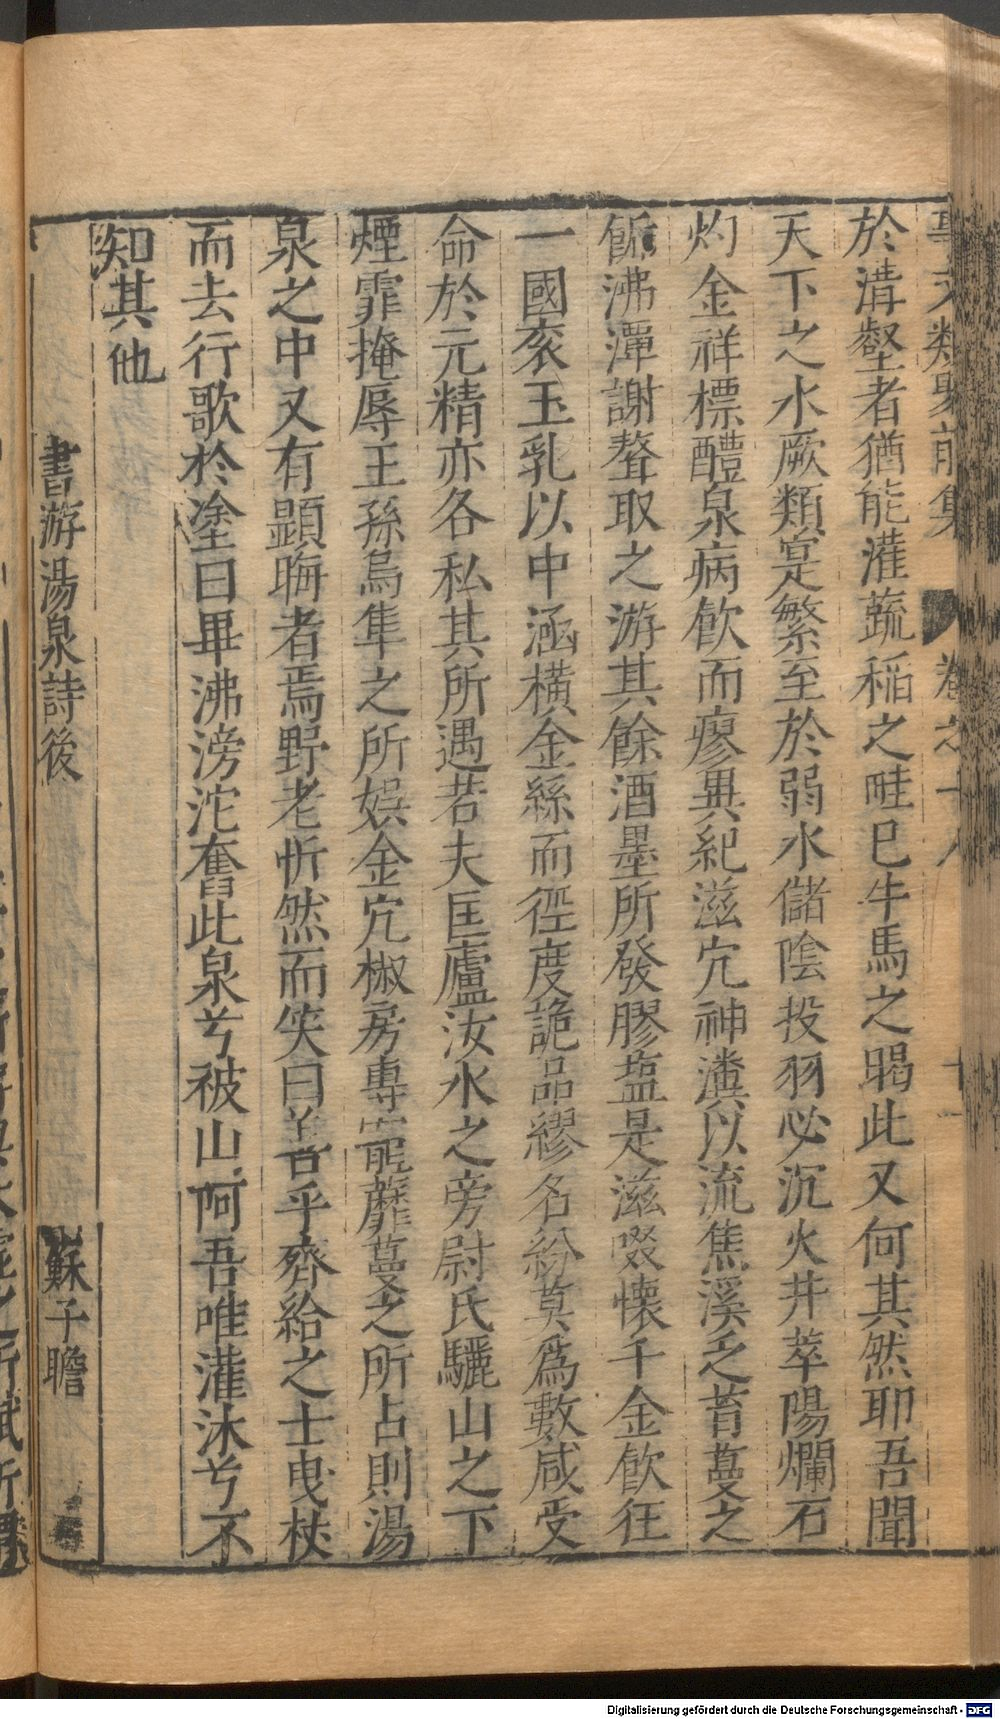 事文類聚前集 卷之十八 十一
於溝壑者猶能灌蔬稻之畦巳牛馬之暍此又何其然耶吾聞
天下之水厥類寔繁至於弱水儲陰投羽必沉火井萃陽爛石
灼金祥標醴泉病飲而瘳異紀滋穴神瀵以流焦溪之蓄蔓之
飾沸潭謝聱取之游其餘酒墨所發膠鹽是滋啜懷千金飲狂
一國衮玉乳以中涵橫金絲而徑度詭品繆名紛莫爲數咸受
命於元精亦各私其所遇若夫匡廬汝水之旁尉氏驪山之下
煙霏掩辱王孫烏隼之所娯金穴椒房專寵蘼蔓之所占則湯
泉之中又有顯晦者焉野老忻然而笑曰善乎齊給之士曳杖
而去行歌於塗曰畢沸滂沱奮此泉兮被山阿吾唯灌沐兮不
知其他
書游湯泉詩後 蘇子瞻